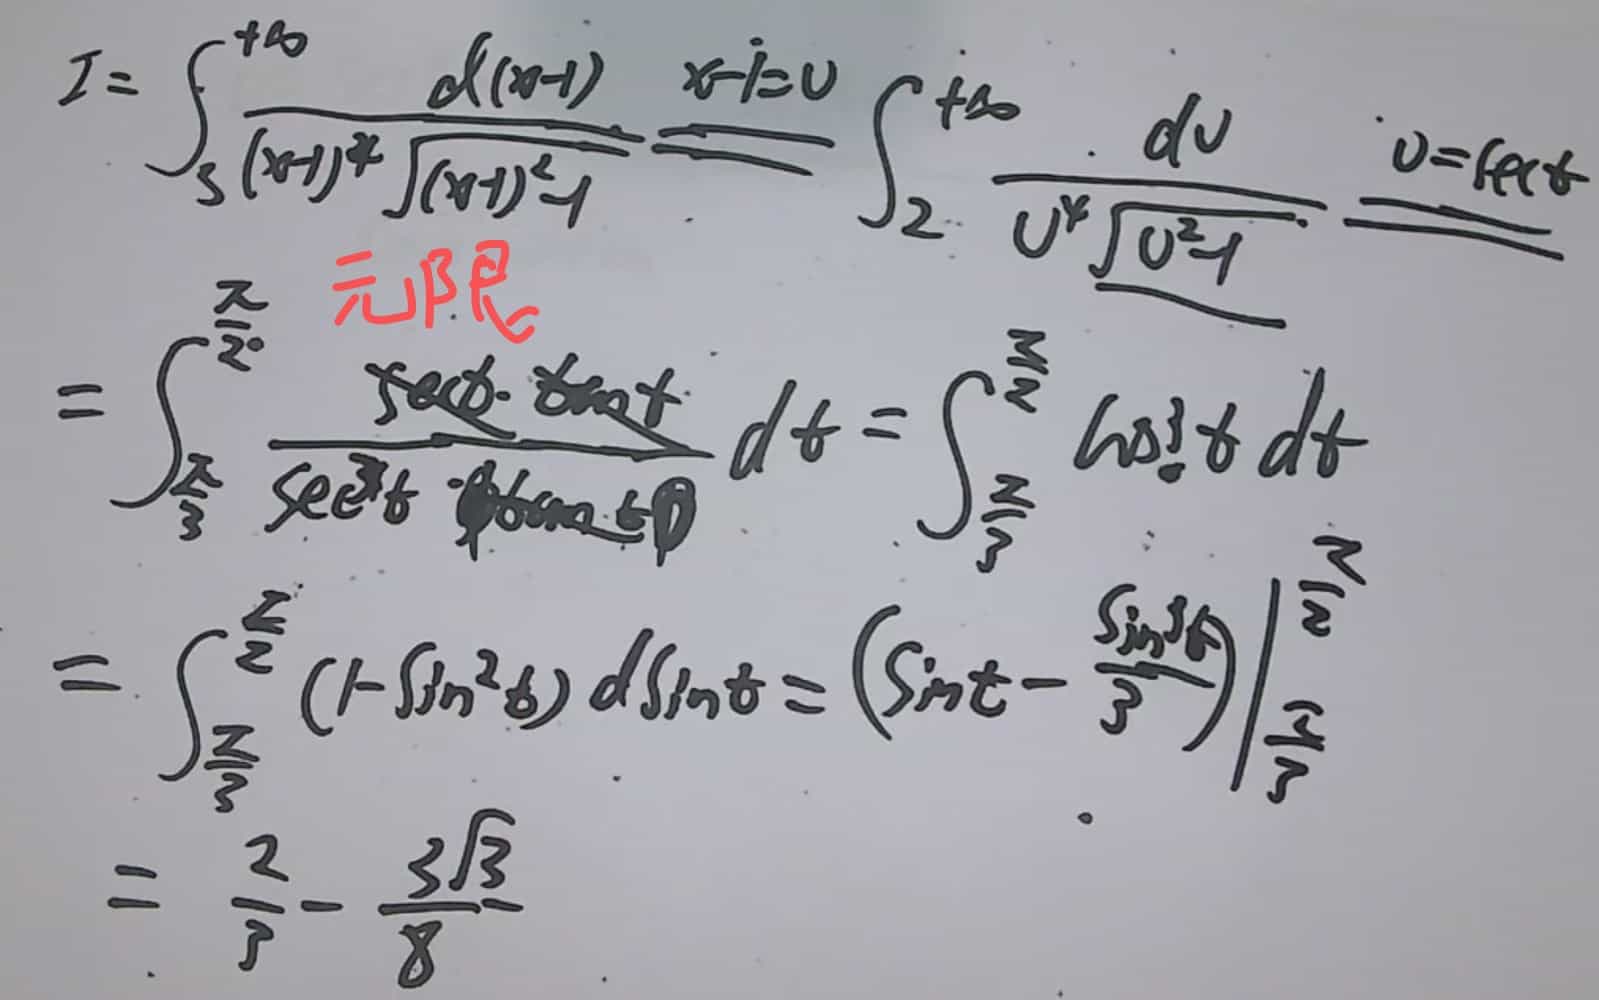 I = ∫_3^{+∞} d(x-1) / ((x-1)^4 √((x-1)^2-1)) x-1=u ∫_2^{+∞} du / (u^4 √(u^2-1)) u=sect
元限
= ∫_{π/3}^{π/2} sect·tant / (sec^4 t |tant|) dt = ∫_{π/3}^{π/2} cos^3 t dt
= ∫_{π/3}^{π/2} (1-sin^2 t) dsint = (sint - sin^3 t / 3) |_{π/3}^{π/2}
= 2/3 - 3√3/8